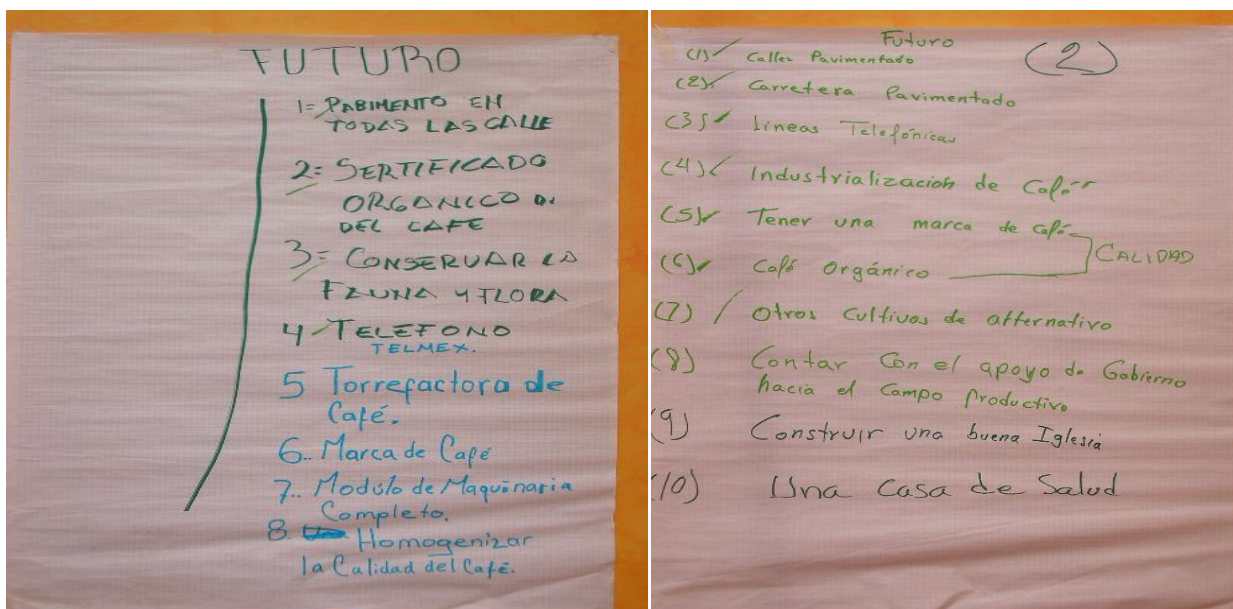 FUTURO
1= PABIMENTO EN
TODAS LAS CALLE
2= SERTIFICADO
ORGANICO DI
DEL CAFE
3= CONSERVAR LA
FAUNA Y FLORA
4 TELEFONO
TELMEX.
5 Torrefactora de
Café.
6.. Marca de Café
7.. Modúlo de Maquinaria
Completo.
8. Homogenizar
la Calidad del Café.
Futuro
(2)
(1) Calles Pavimentado
(2) Carretera Pavimentado
(3) Lineas Telefónicas
(4) Industrialización de Café
(5) Tener una marca de café
CALIDAD
(6) Café Orgánico
(7) Otros Cultivos de alternativo
(8) Contar Con el apoyo de Gobierno
hacia el Campo Productivo
(9) Construir una buena Iglesia
(10) Una Casa de Salud